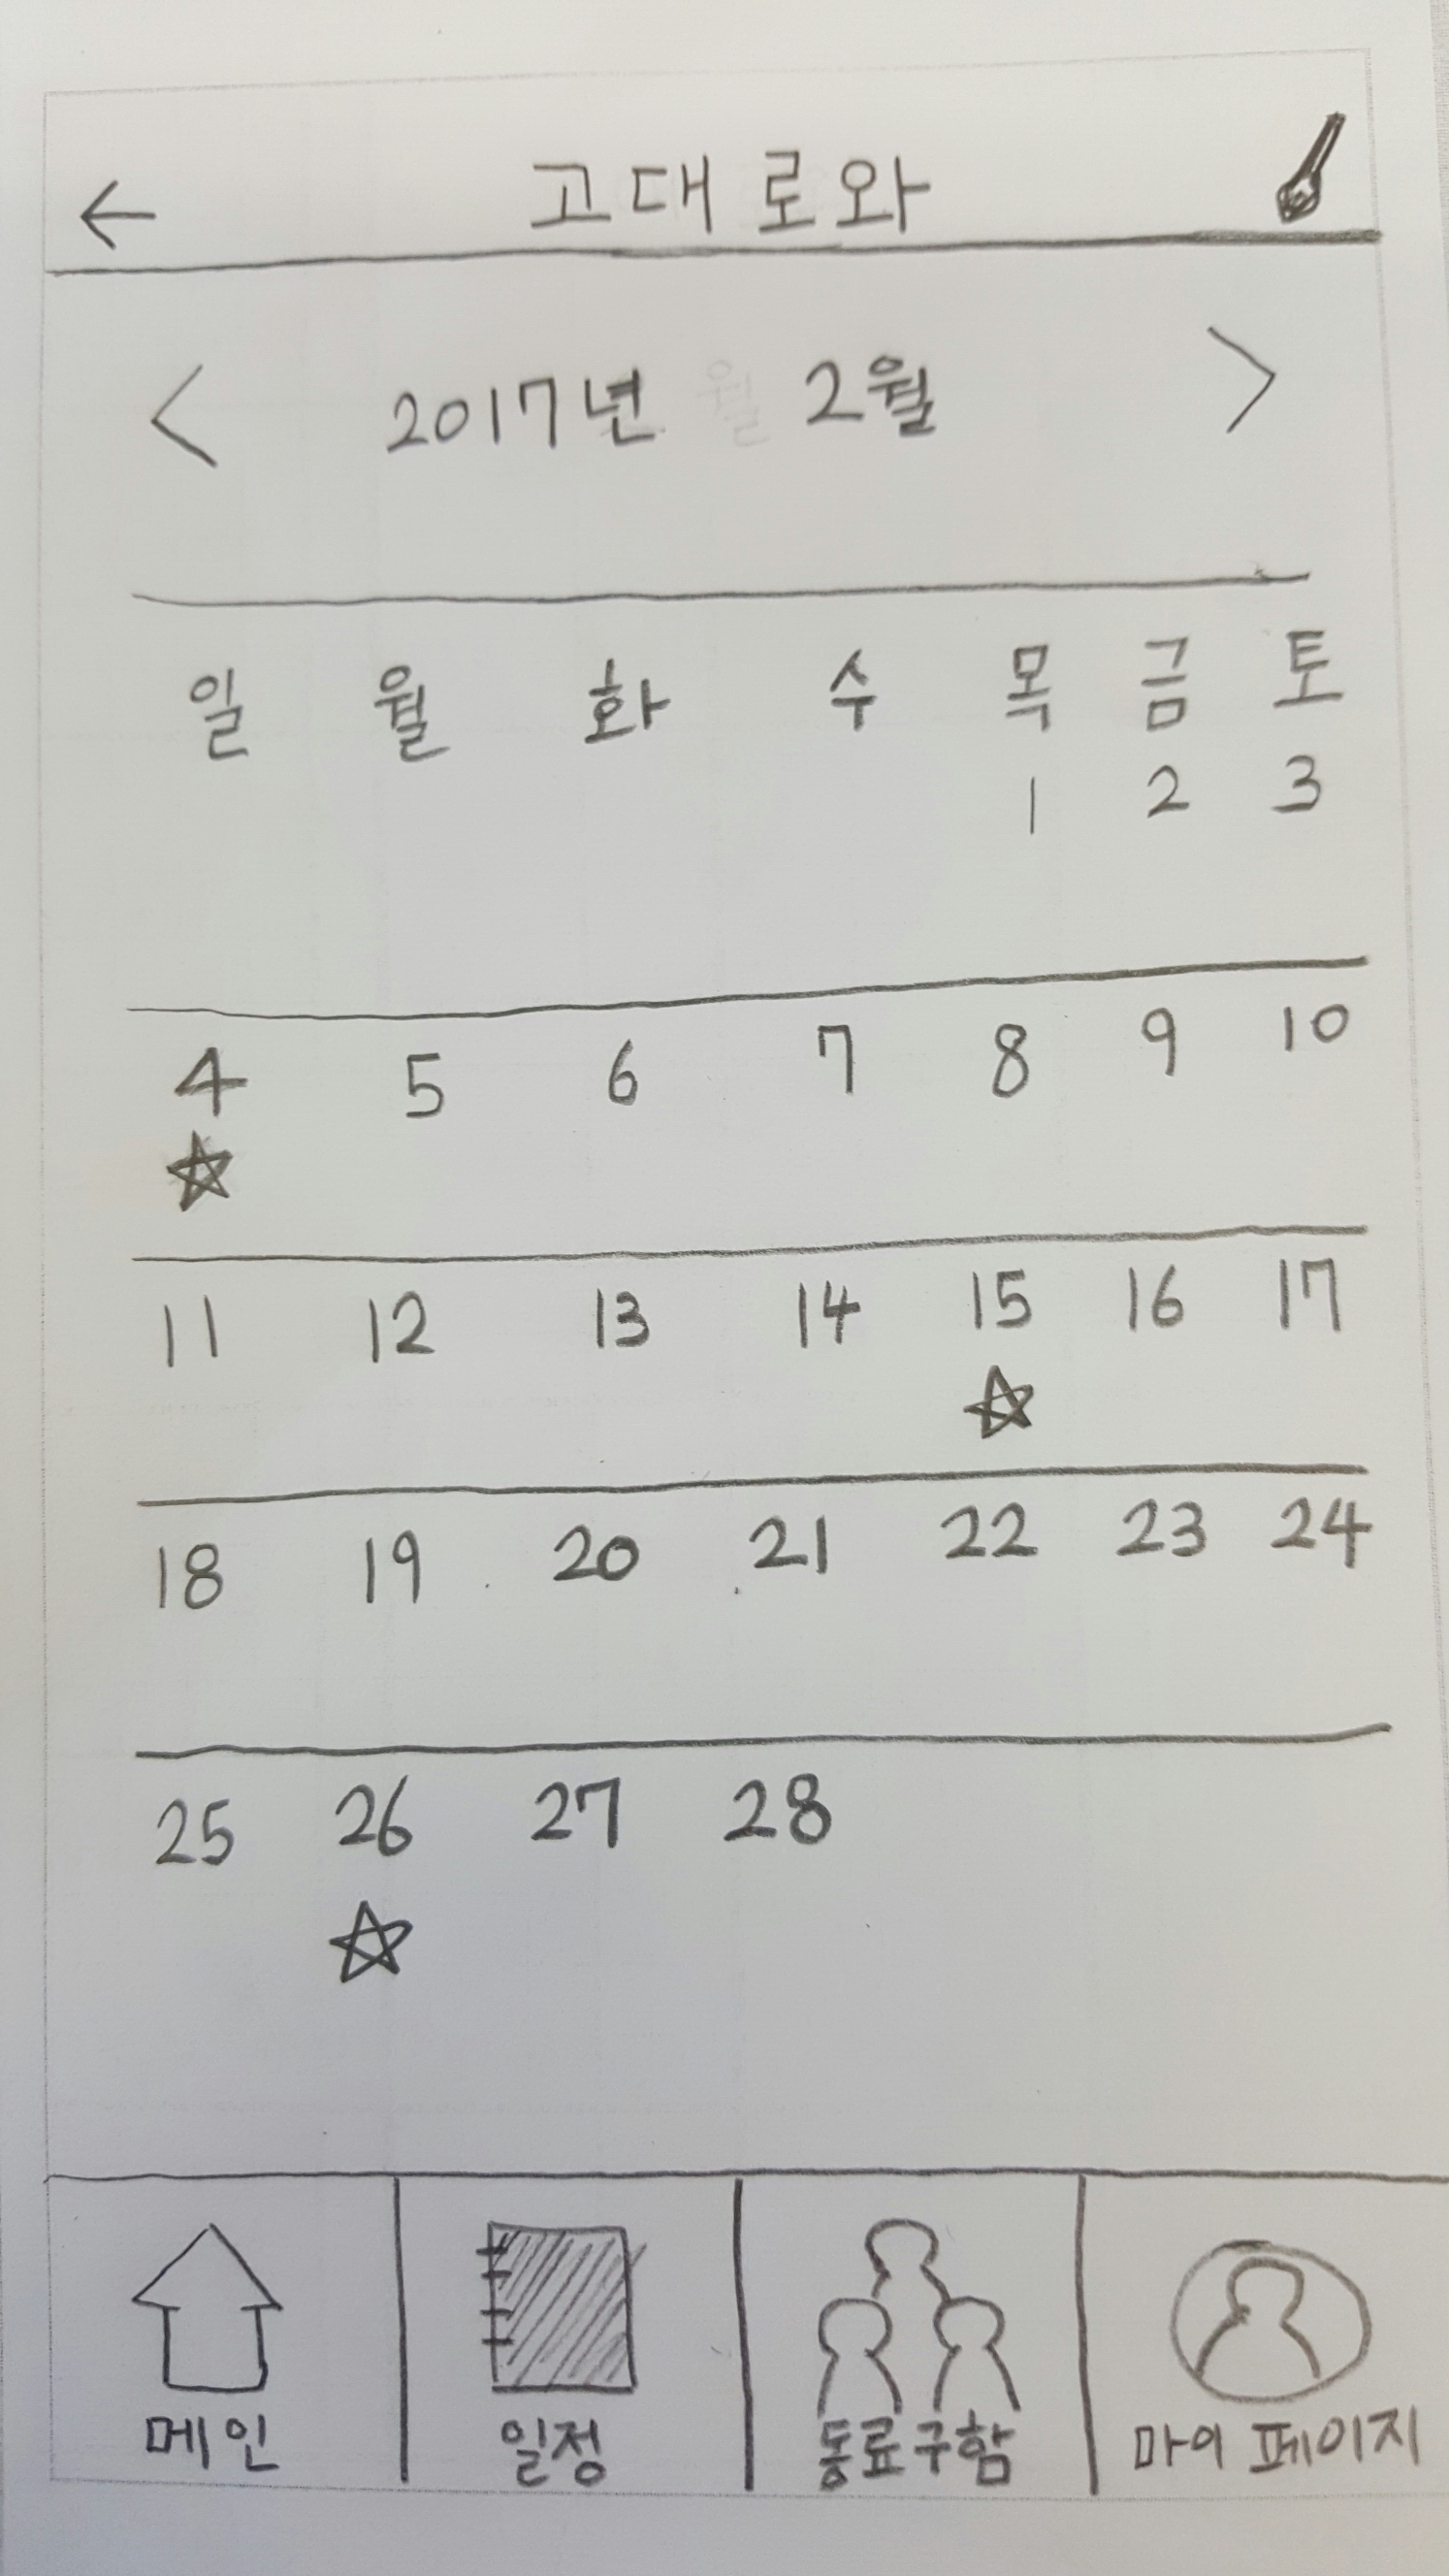 고대로와
2017년 2월
일 월 화 수 목 금 토
1 2 3
4 5 6 7 8 9 10
11 12 13 14 15 16 17
18 19 20 21 22 23 24
25 26 27 28
메인 일정 동료구함 마이 페이지